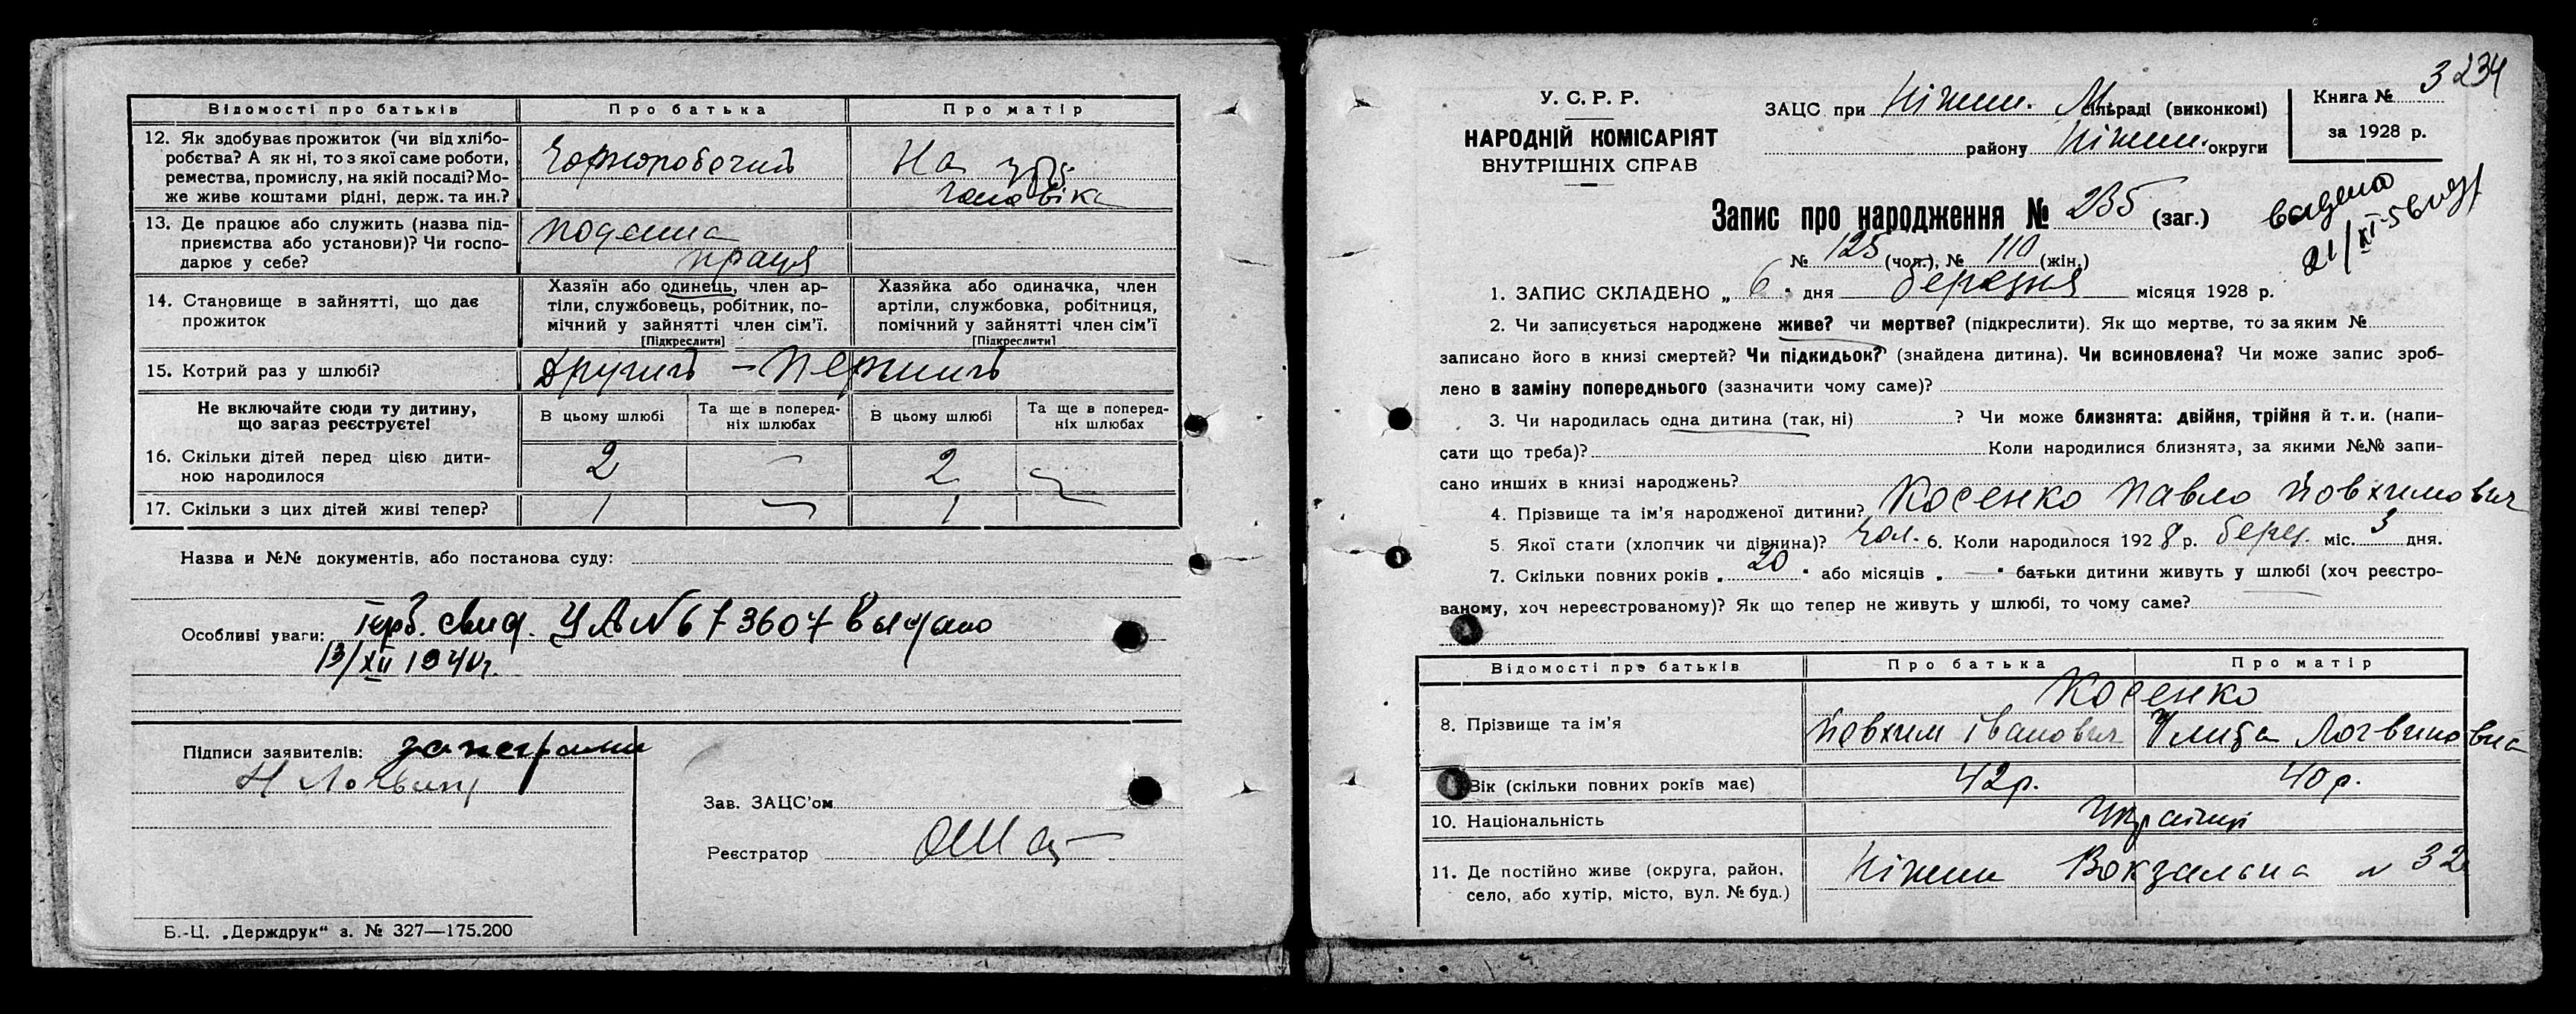 Відомості про батьків Про батька Про матір
12. Як здобуває прожиток (чи від хлібо-
робєтва? А як ні, то з якої саме роботи,
ремества, промислу, на якій посаді? Мо-
же живе коштами рідні, держ. та ин.?
Чорноробочий
На
чоловіка
13. Де працює або служить (назва під-
приємства або установи)? Чи госпо-
дарює у себе?
поденна
праця
14. Становище в зайнятті, що дає
прожиток
Хазяїн або одинець, член ар-
тіли, службовець, робітник, по-
мічний у зайнятті член сім’ї.
[Підкреслити]
Хазяйка або одиначка, член
артіли, службовка, робітниця,
помічний у зайнятті член сім’ї
[Підкреслити]
15. Котрий раз у шлюбі?
другий — первий
Не включайте сюди ту дитину,
що загаз реєструєте!
В цьому шлюбі
Та ще в поперед-
ніх шлюбах
В цьому шлюбі
Та ще в поперед-
ніх шлюбах
16. Скільки дітей перед цією дити-
ною народилося
2 — 2 —
17. Скільки з цих дітей живі тепер?
1 — 1 —
Назва и №№ документів, або постанова суду:
Особливі уваги: Герб. свид. УА № 673607 выдано
13/XII 1940 г.
Підписи заявителів:
Зав. ЗАЦС’ом
Реєстратор
Б.-Ц. „Держдрук“ з. № 327—175.200
3 234
У. С. Р. Р.
НАРОДНІЙ КОМІСАРІЯТ
ВНУТРІШНІХ СПРАВ
ЗАЦС при Ніжин. М. сільраді (виконкомі)
району Ніжин. округи
Книга №
за 1928 р.
Запис про народження № 235 (заг.)
№ 125 (чол.), № 110 (жін.)
21/XI-5
1. ЗАПИС СКЛАДЕНО „ 6 “ дня березня місяця 1928 р.
2. Чи записується народжене живе? чи мертве? (підкреслити). Як що мертве, то за яким №
записано його в книзі смертей? Чи підкидьок? (знайдена дитина). Чи всиновлена? Чи може запис зроб-
лено в заміну попереднього (зазначити чому саме)?
3. Чи народилась одна дитина (так, ні) ? Чи може близнята: двійня, трійня й т. и. (напи-
сати що треба)? Коли народилися близнята, за якими №№ запи-
сано инших в книзі народжень?
4. Прізвище та ім’я народженої дитини? Косенко Павло Йовхимович
5 Якої стати (хлопчик чи дівчина)? Чол. 6. Коли народилося 1928 р. берез. міс. 3 дня.
7. Скільки повних років „ 20 “ або місяців „ — “ батьки дитини живуть у шлюбі (хоч реєстро-
ваному, хоч нереєстрованому)? Як що тепер не живуть у шлюбі, то чому саме?
Відомості про батьків Про батька Про матір
Косенко
8. Прізвище та ім’я
Йовхим Іванович Улита Логвиновна
Вік (скільки повних років має) 42 р. 40 р.
10. Національність Українці
11. Де постійно живе (округа, район,
село, або хутір, місто, вул. № буд.)
Ніжин Вокзальна № 32